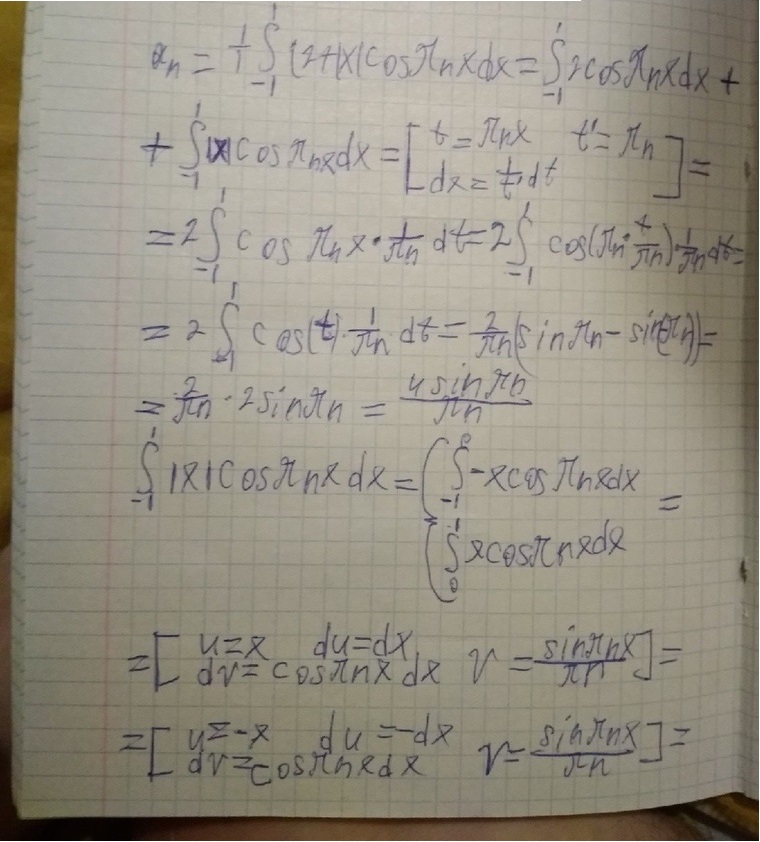 aₙ = 1/1 ∫₋₁¹ (2+|x|cosπnxdx = ∫₋₁¹ 2cosπnxdx +
+ ∫₋₁¹ |x|cosπnxdx = [t = πnx t' = πn dx = 1/t' dt] =
= 2∫₋₁¹ cos πnx · 1/πn dt = 2∫₋₁¹ cos(πn · t/πn) · 1/πn dt =
= 2 ∫₋₁¹ cos(t) · 1/πn dt = 2/πn (sin πn - sin(-πn)) =
= 2/πn · 2sinπn = 4sinπn/πn
∫₋₁¹ |x|cosπnxdx = ( ∫₋₁⁰ -xcosπnxdx =
∫₀¹ xcosπnxdx
= [u=x du=dx v = sinπnx/πn] =
dv = cosπnxdx
= [u=-x du=-dx v= sinπnx/πn] =
dv=cosπnxdx